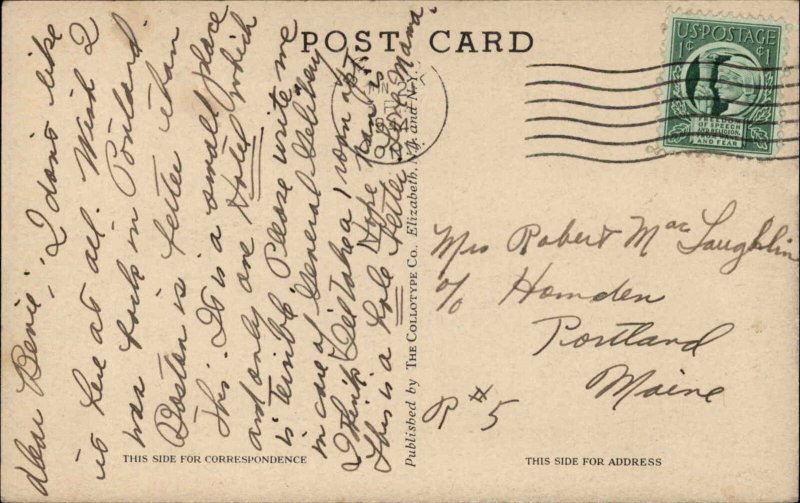 POST CARD
U.S. POSTAGE
1¢ ¢1
FREEDOM
OF SPEECH
AND RELIGION,
AND FEAR
N.Y.
Dear Bevie, I dont like
it here at all. Wish I
was back in Portland.
Boston is better than
this. It is a small place
and only one Hotel which
is terrible. Please write me
in care of "General Delivery"
I think I'll take a room apt.
This is a hole Hope Kan is
better Love Mama.
Published by THE COLLOTYPE CO., Elizabeth, N.J. and N.Y.
Mrs Robert MacLaughlin
c/o Hamden
Portland
Maine
R #5
THIS SIDE FOR CORRESPONDENCE
THIS SIDE FOR ADDRESS